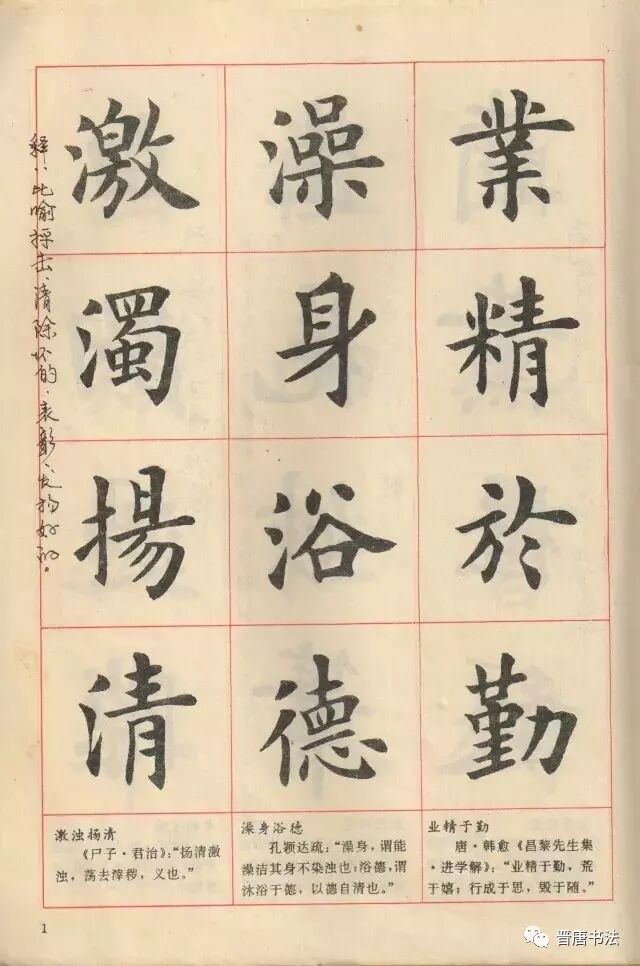 業精於勤
澡身浴德
激濁揚清
释：比喻抨击、清除坏的，表彰、发扬好的。
业精于勤
唐·韩愈《昌黎先生集
·进学解》：“业精于勤，荒
于嬉；行成于思，毁于随。”
澡身浴德
孔颖达疏：“澡身，谓能
澡洁其身不染浊也；浴德，谓
沐浴于德，以德自清也。”
激浊扬清
《尸子·君治》：“扬清激
浊，荡去滓秽，义也。”
1
晋唐书法